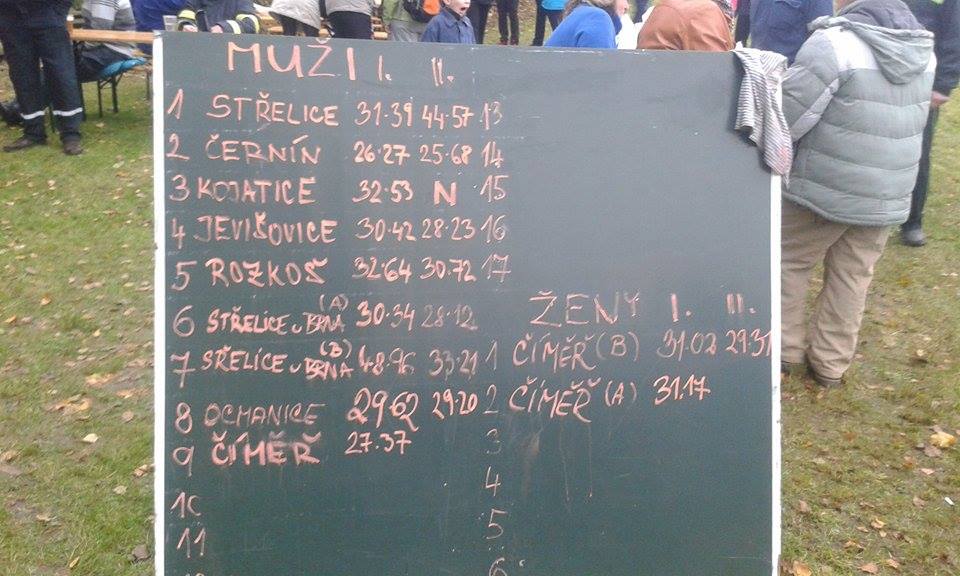 MUŽI I. II.
1 STŘELICE 31·39 44·57 13
2 ČERNÍN 26·27 25·68 14
3 KOJATICE 32·53 N 15
4 JEVIŠOVICE 30·42 28·23 16
5 ROZKOŠ 32·64 30·72 17
6 STŘELICE u BRNA (A) 30·34 28·12
7 SŘELICE u BRNA (B) 48·96 33·21
8 OCMANICE 29·62 29·20
9 ČÍMĚŘ 27·37
10
11
ŽENY I. II.
1 ČÍMĚŘ (B) 31·02 29·31
2 ČÍMĚŘ (A) 31·17
3
4
5
6